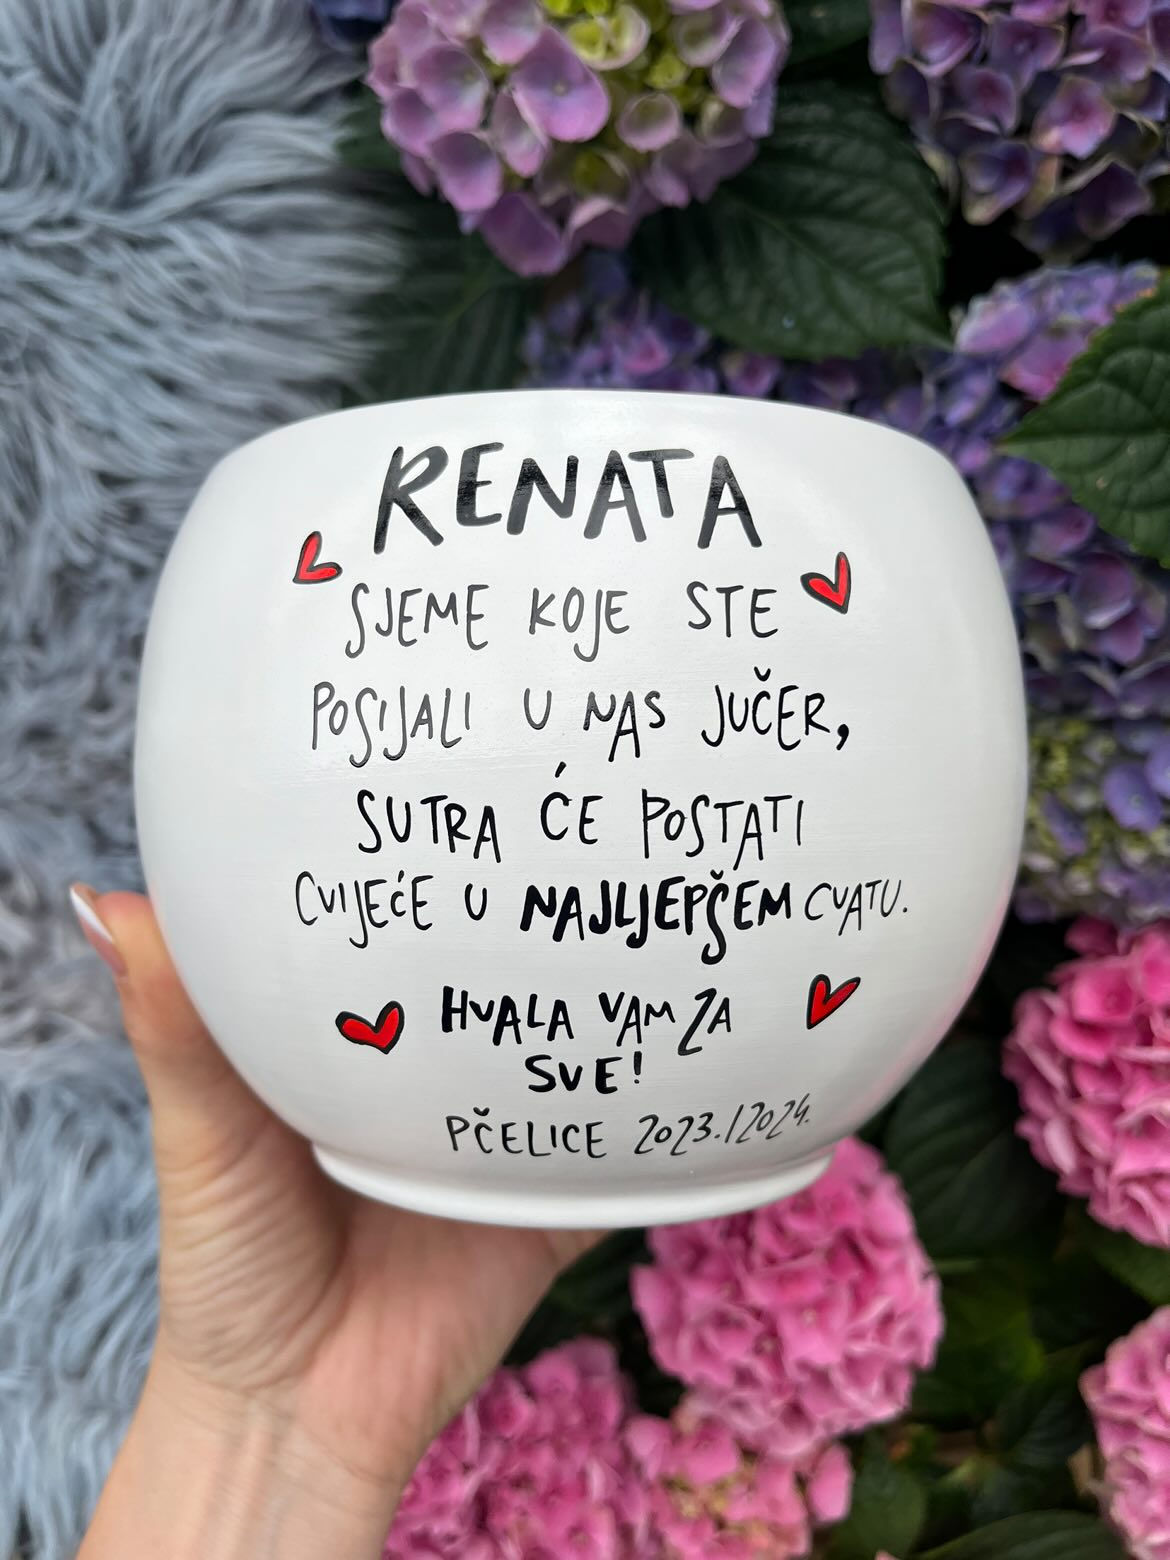 RENATA
SJEME KOJE STE
POSIJALI U NAS JUČER,
SUTRA ĆE POSTATI
CVIJEĆE U NAJLJEPŠEM CVATU.
HVALA VAM ZA
SVE!
PČELICE 2023./2024.